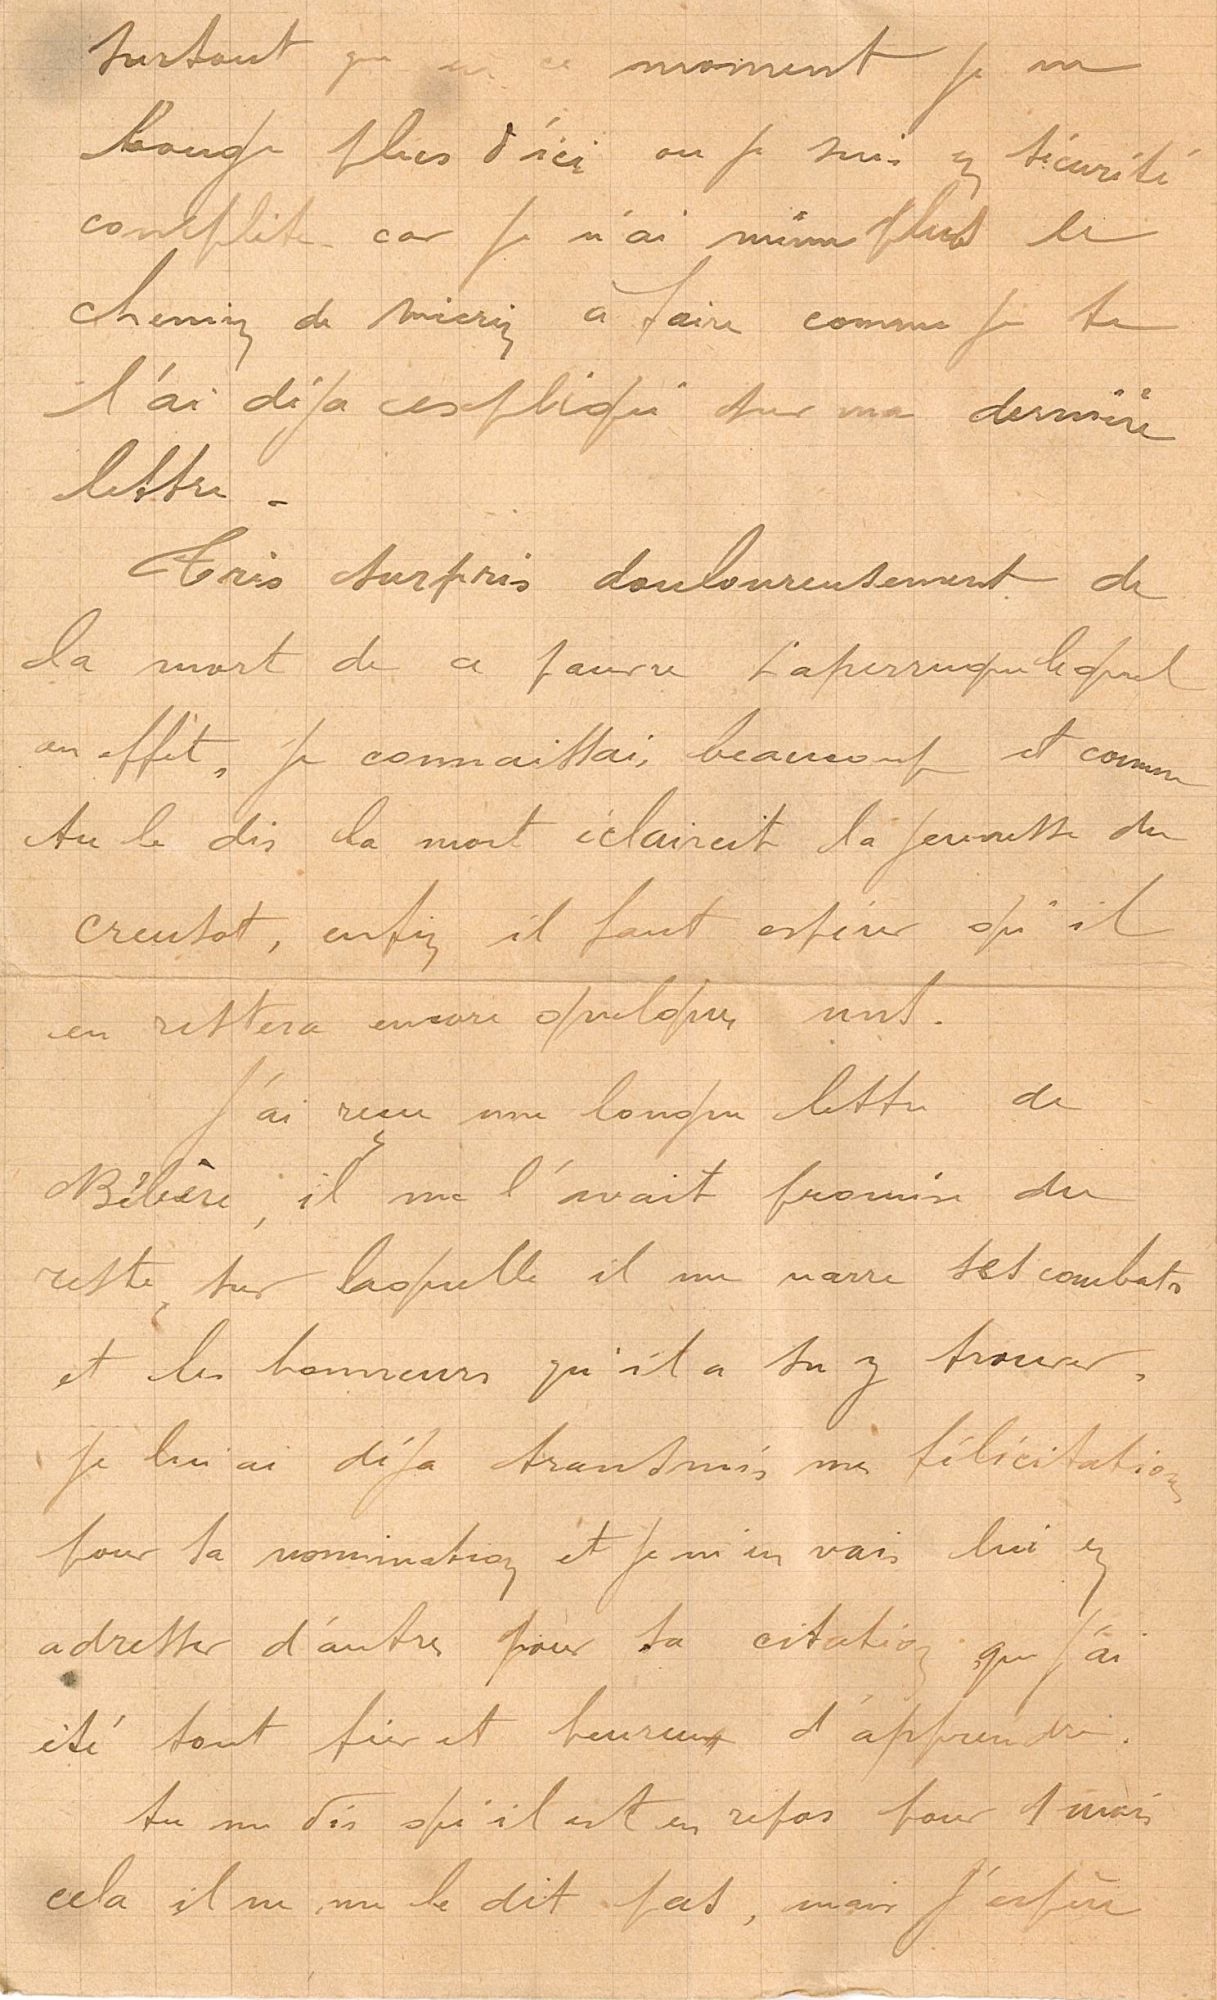 surtout que en ce moment je ne
bouge plus d'ici ou je suis en sécurité
complète car je n'ai même plus le
chemin de Miery à faire comme je te
l'ai déja expliqué sur ma dernière
lettre -
Très surpris douloureusement de
la mort de ce pauvre Laperruque lequel
en effet, je connaissais beaucoup et comme
tu le dis la mort éclaircit la jeunesse du
Creusot, enfin il faut espérer qu'il
en restera encore quelques uns.
J'ai reçu une longue lettre de
Bébère, il me l'avait promise du
reste, sur laquelle il me narre ses combats
et les honneurs qu'il a su y trouver,
je lui ai déja transmis mes félicitations
pour sa nomination et je m'en vais lui en
adresser d'autres pour sa citation que j'ai
été tout fier et heureux d'apprendre.
tu me dis qu'il est en repos pour 1 mois
cela il ne me le dit pas, mais j'espère